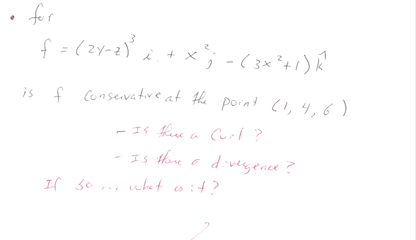 • for
f = (2y-z)³ i + x² j - (3x²+1) k̂
is f conservative at the point (1, 4, 6)
- Is there a Curl ?
- Is there a divergence ?
If so ... what is it ?